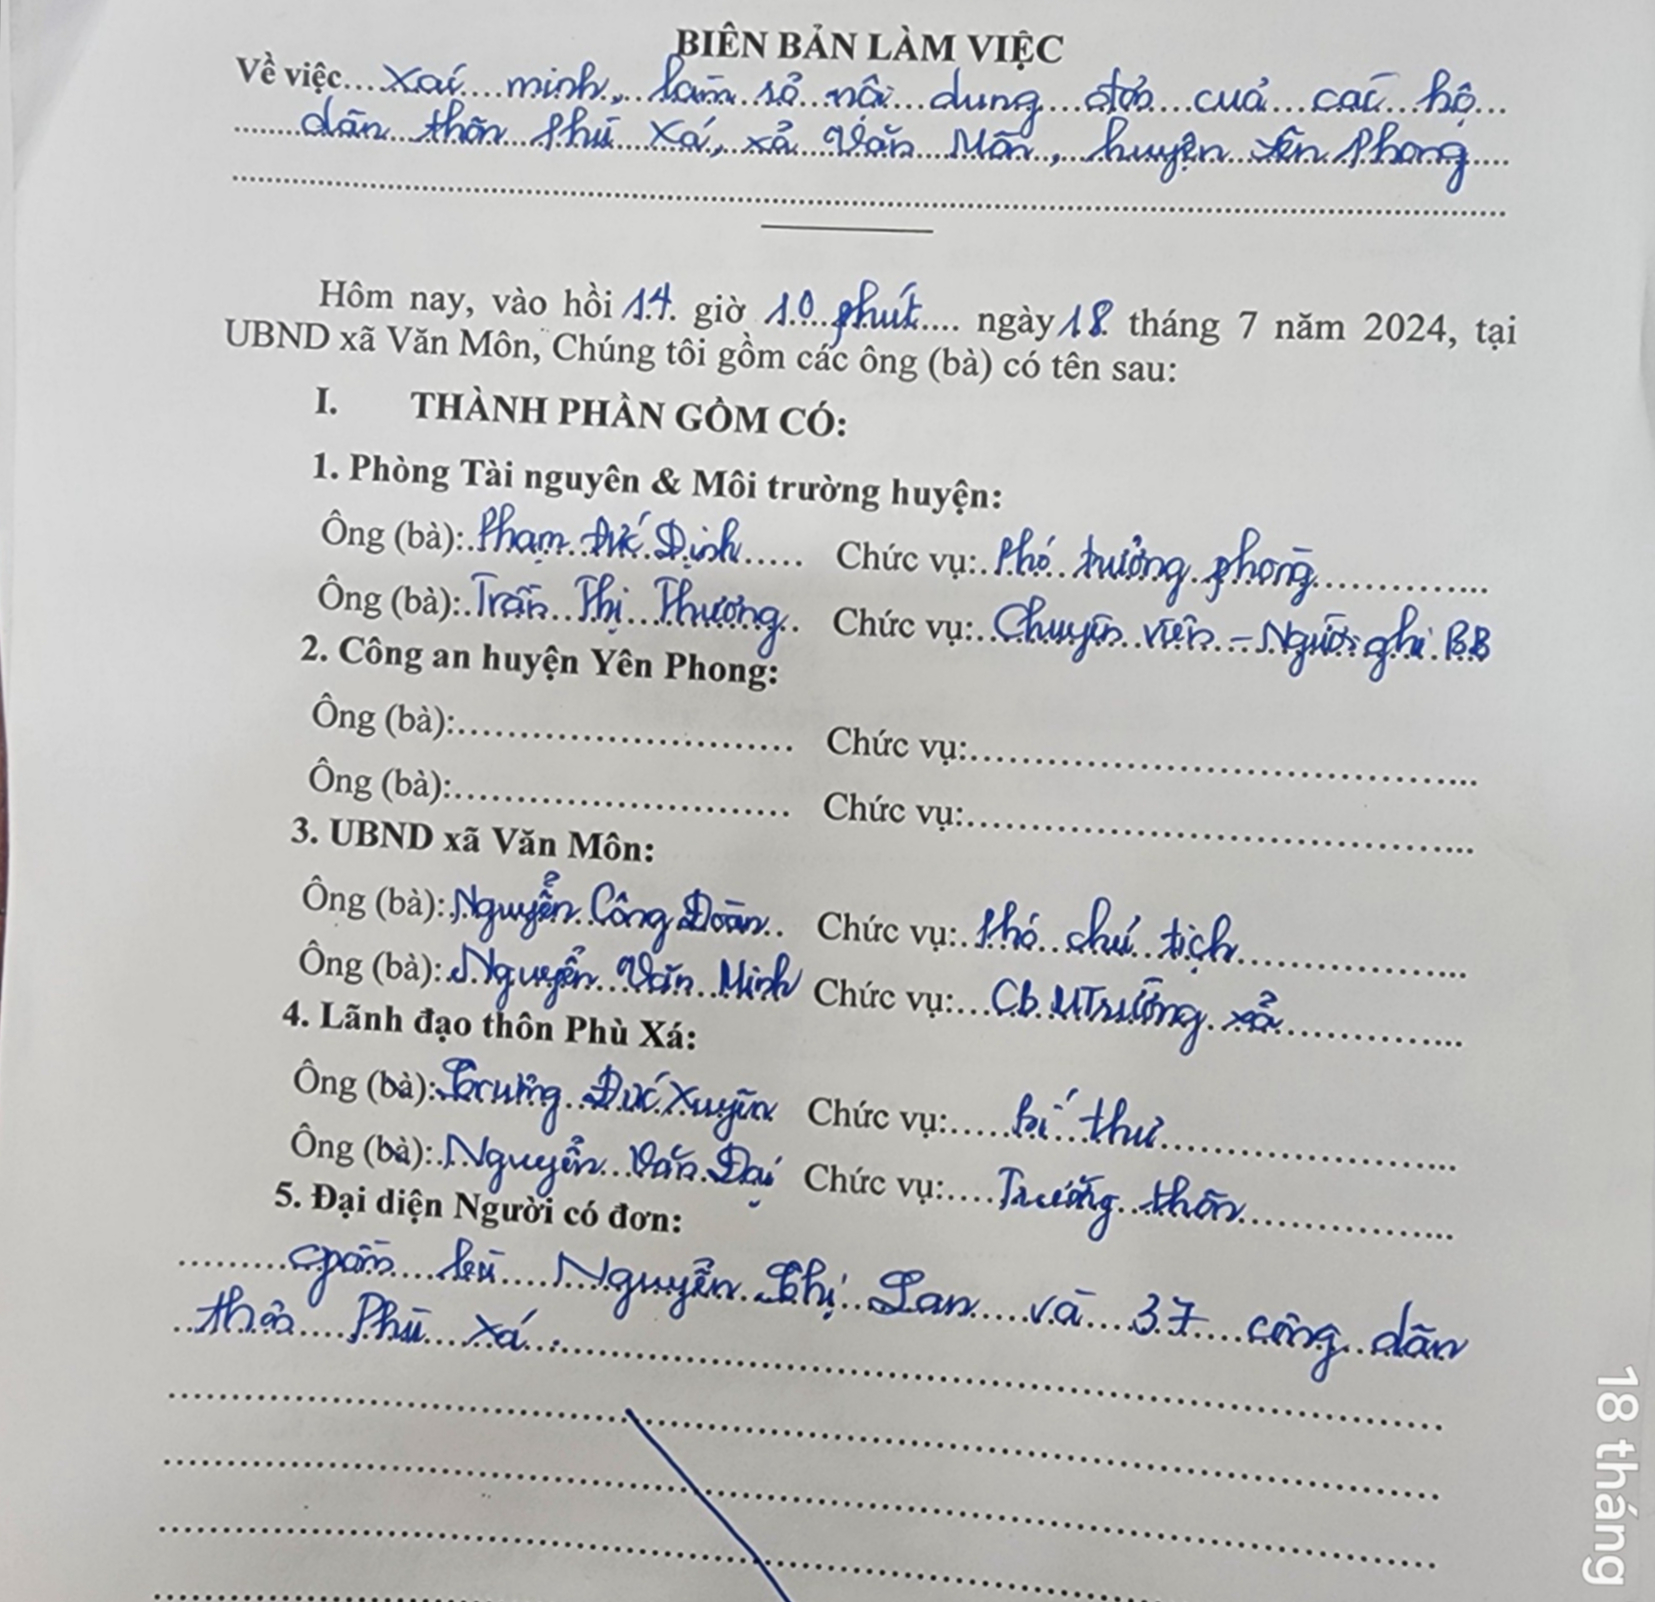 BIÊN BẢN LÀM VIỆC
Về việc... xác minh, làm rõ nội dung đơn của các hộ
dân thôn Phù Xá, xã Văn Môn, huyện Yên Phong
Hôm nay, vào hồi 14 giờ 10 phút ngày 18 tháng 7 năm 2024, tại
UBND xã Văn Môn, Chúng tôi gồm các ông (bà) có tên sau:
I. THÀNH PHẦN GỒM CÓ:
1. Phòng Tài nguyên & Môi trường huyện:
Ông (bà): Phạm Đức Định Chức vụ: Phó trưởng phòng
Ông (bà): Trần Thị Thương Chức vụ: Chuyên viên - Người ghi BB
2. Công an huyện Yên Phong:
Ông (bà): Chức vụ:
Ông (bà): Chức vụ:
3. UBND xã Văn Môn:
Ông (bà): Nguyễn Công Đoàn Chức vụ: Phó chủ tịch
Ông (bà): Nguyễn Văn Minh Chức vụ: Cb MTrường xã
4. Lãnh đạo thôn Phù Xá:
Ông (bà): Trương Đức Xuyên Chức vụ: bí thư
Ông (bà): Nguyễn Văn Đại Chức vụ: Trưởng thôn
5. Đại diện Người có đơn:
gồm bà Nguyễn Thị Lan và 37 công dân
thôn Phù Xá.
18 tháng